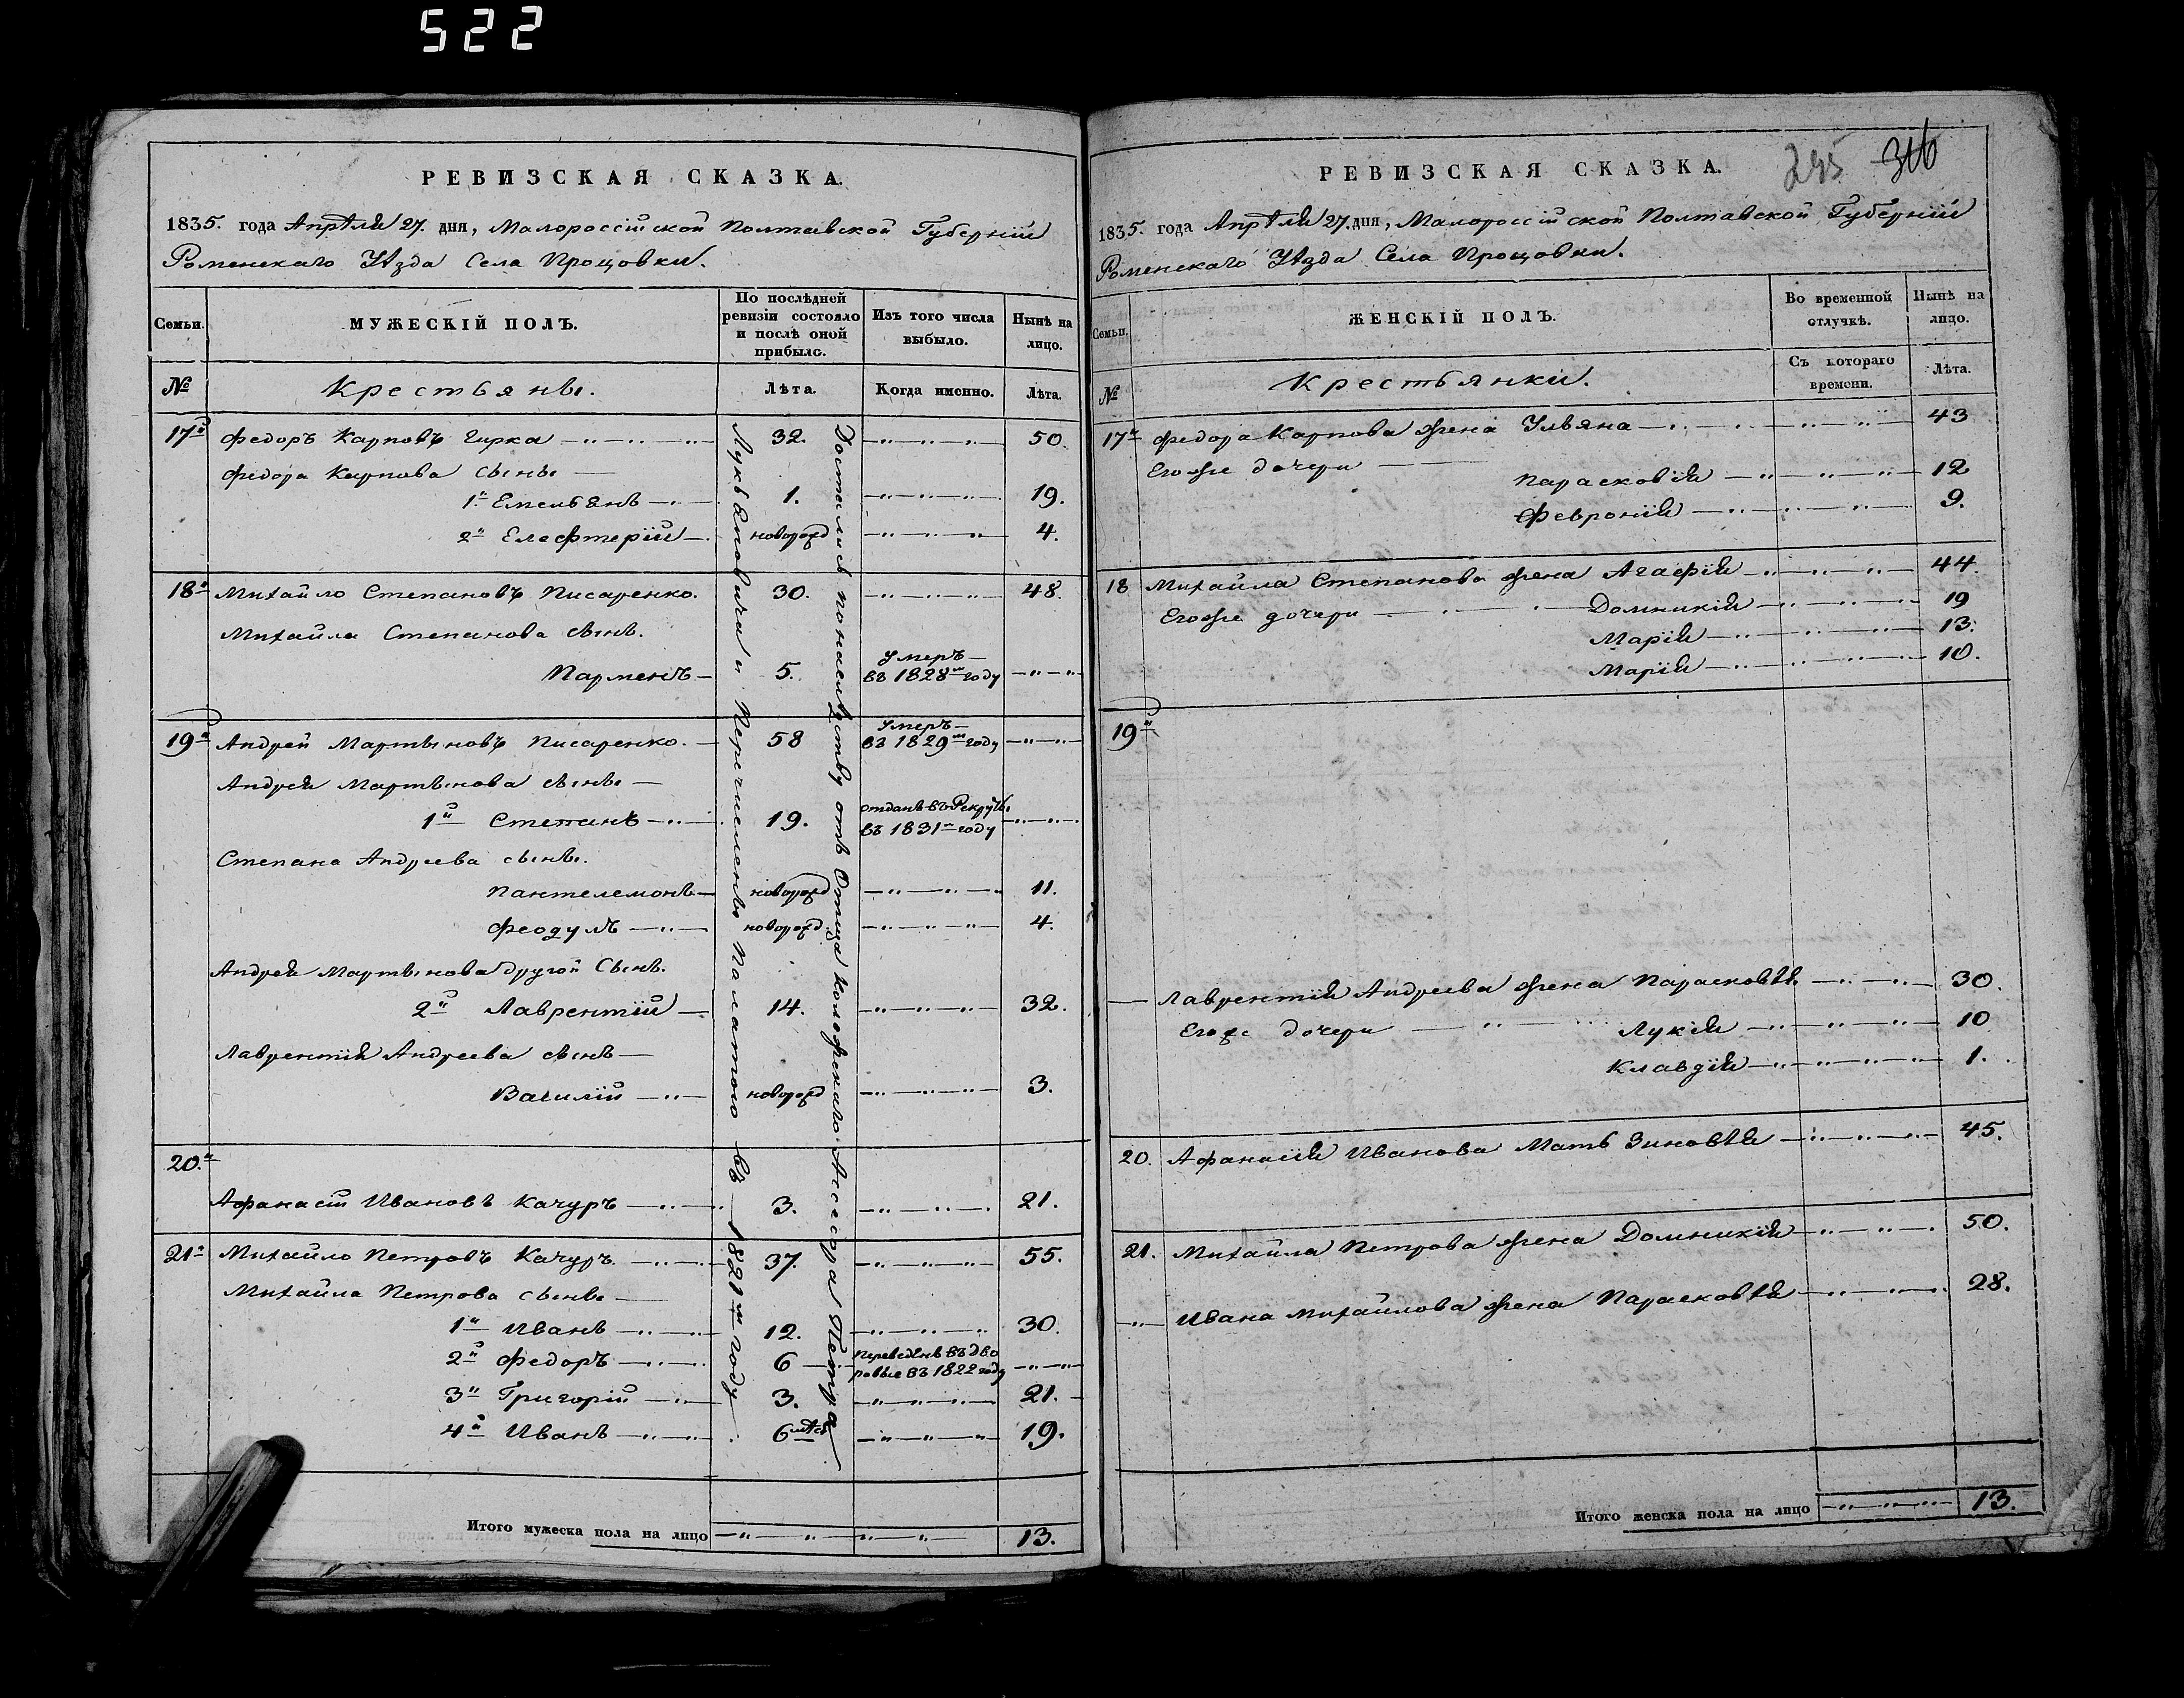 522
РЕВИЗСКАЯ СКАЗКА.
1835. года Апрѣля 27. дня, Малороссійской Полтавской Губерніи
Роменскаго Уѣзда Села Процовки.
Семьи.
МУЖЕСКІЙ ПОЛЪ.
По послѣдней ревизіи состояло и послѣ оной прибыло.
Изъ того числа выбыло.
Нынѣ на лицо.
№ Крестьяне. Лѣта. Когда именно. Лѣта.
17й Федоръ Карповъ Гирка 32. 50.
Федора Карпова сыны
1й Емельянъ 1. 19.
2й Елефтерій новорожд 4.
18й Михайло Степановъ Писаренко. 30. 48.
Михайла Степанова сынъ.
Парменъ 5. Умеръ въ 1828м году
19й Андрей Мартыновъ Писаренко. 58 Умеръ въ 1829м году
Андрея Мартынова сыны
1й Степанъ 19. отданъ въ Рекруты въ 1831м году
Степана Андреева сыны.
Пантелемонъ новорожд 11.
Феодулъ новорожд. 4.
Андрея Мартынова другой Сынъ.
2й Лаврентій 14. 32.
Лаврентія Андреева сынъ
Василій новорожд 3.
20.й
Афанасій Ивановъ Качуръ 3. 21.
21й Михайло Петровъ Качуръ. 37. 55.
Михайла Петрова сыны
1й Иванъ 12. 30.
2й Федоръ 6 переведенъ въ дворовые въ 1822 году
3й Григорій 3. 21.
4й Иванъ 6 мѣс 19.
Достались по наслѣдству отъ Отца Колежскаго Ассесора Петра
Лукьяновича и Перечислены Палатою въ 1821м году
Итого мужеска пола на лицо 13.
295 316
РЕВИЗСКАЯ СКАЗКА.
1835. года Апрѣля 27. дня, Малороссійской Полтавской Губерніи
Роменскаго Уѣзда Села Процовки.
Семьи.
ЖЕНСКІЙ ПОЛЪ.
Во временной отлучкѣ.
Нынѣ на лицо.
№ Крестьянки. Съ котораго времени. Лѣта.
17й Федора Карпова жена Ульяна 43
Егоже дочери
Парасковія 12
Февронія 9.
18 Михайла Степанова жена Агафія 44.
Егоже дочери Домникія 19
Марія 13.
Марія 10.
19й
Лаврентія Андреева жена Парасковѣя 30.
Егоже дочери Лукія 10
Клавдія 1.
20. Афанасія Иванова Мать Зиновѣя 45.
21. Михайла Петрова жена Домникія 50.
Ивана Михайлова жена Парасковѣя 28.
Итого женска пола на лицо 13.